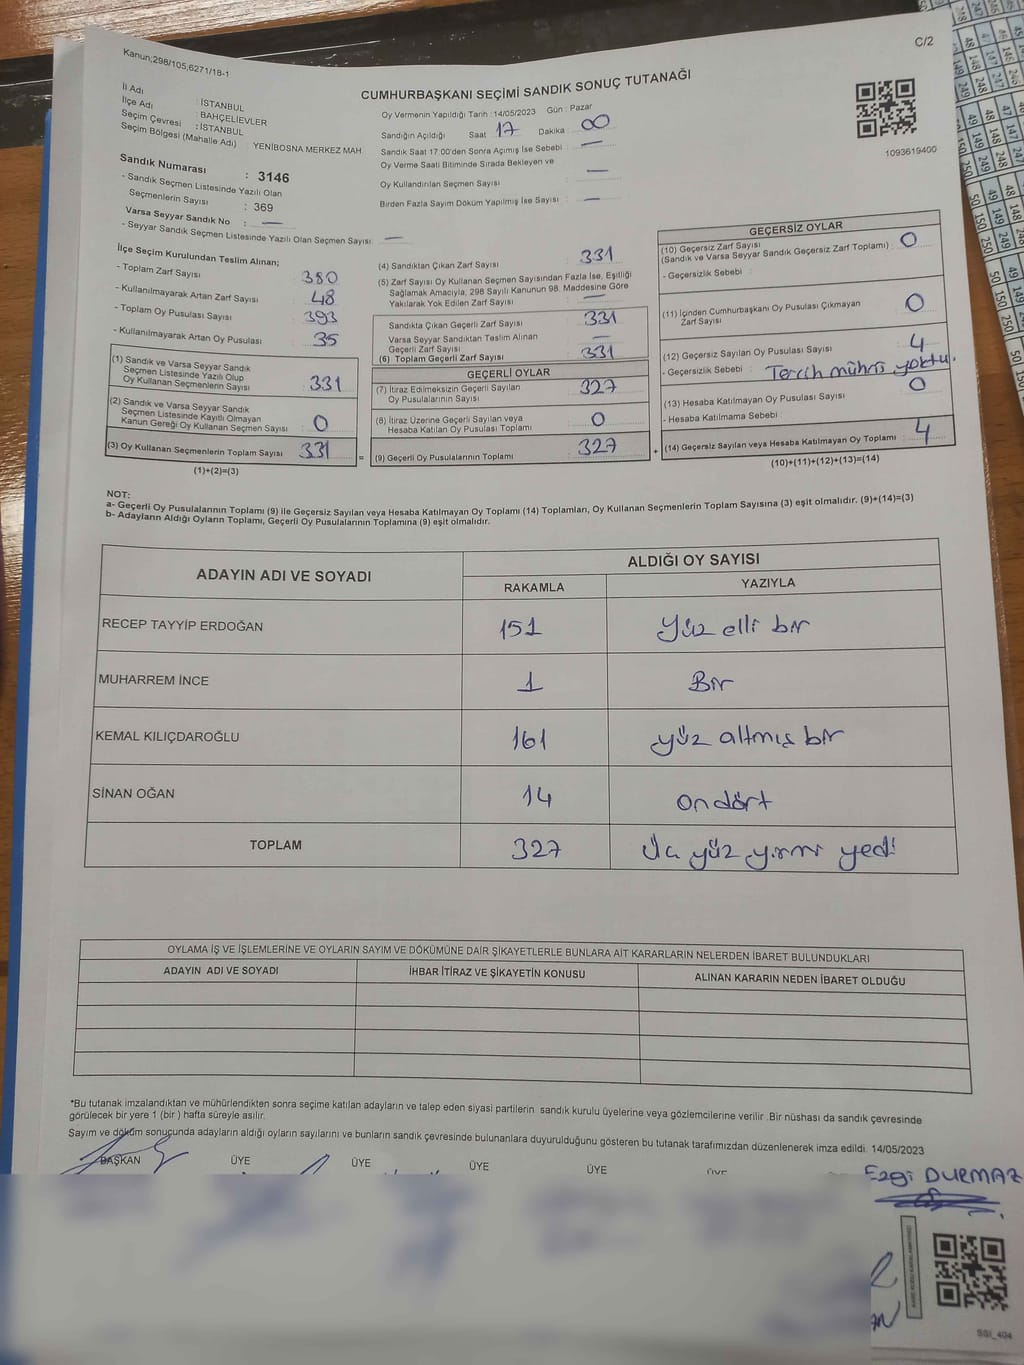 Kanun;298/105,6271/18-1
C/2
CUMHURBAŞKANI SEÇİMİ SANDIK SONUÇ TUTANAĞI
İl Adı : İSTANBUL
İlçe Adı : BAHÇELİEVLER
Seçim Çevresi : İSTANBUL
Seçim Bölgesi (Mahalle Adı) : YENİBOSNA MERKEZ MAH.
Sandık Numarası : 3146
- Sandık Seçmen Listesinde Yazılı Olan
Seçmenlerin Sayısı : 369
Varsa Seyyar Sandık No : —
- Seyyar Sandık Seçmen Listesinde Yazılı Olan Seçmen Sayısı: —
Oy Vermenin Yapıldığı Tarih : 14/05/2023 Gün : Pazar
Sandığın Açıldığı Saat 17 Dakika : 00
Sandık Saat 17:00'den Sonra Açımış İse Sebebi : —
Oy Verme Saati Bitiminde Sırada Bekleyen ve
Oy Kullandırılan Seçmen Sayısı : —
Birden Fazla Sayım Döküm Yapılmış İse Sayısı : —
1093619400
İlçe Seçim Kurulundan Teslim Alınan;
- Toplam Zarf Sayısı : 380
- Kullanılmayarak Artan Zarf Sayısı : 48
- Toplam Oy Pusulası Sayısı : 393
- Kullanılmayarak Artan Oy Pusulası : 35
(1) Sandık ve Varsa Seyyar Sandık
Seçmen Listesinde Yazılı Olup
Oy Kullanan Seçmenlerin Sayısı : 331
(2) Sandık ve Varsa Seyyar Sandık
Seçmen Listesinde Kayıtlı Olmayan
Kanun Gereği Oy Kullanan Seçmen Sayısı : 0
(3) Oy Kullanan Seçmenlerin Toplam Sayısı : 331
(1)+(2)=(3)
(4) Sandıktan Çıkan Zarf Sayısı : 331
(5) Zarf Sayısı Oy Kullanan Seçmen Sayısından Fazla İse, Eşitliği
Sağlamak Amacıyla, 298 Sayılı Kanunun 98. Maddesine Göre
Yakılarak Yok Edilen Zarf Sayısı : —
Sandıkta Çıkan Geçerli Zarf Sayısı : 331
Varsa Seyyar Sandıktan Teslim Alınan
Geçerli Zarf Sayısı : —
(6) Toplam Geçerli Zarf Sayısı : 331
GEÇERLİ OYLAR
(7) İtiraz Edilmeksizin Geçerli Sayılan
Oy Pusulalarının Sayısı : 327
(8) İtiraz Üzerine Geçerli Sayılan veya
Hesaba Katılan Oy Pusulası Toplamı : 0
= (9) Geçerli Oy Pusulalarının Toplamı : 327
GEÇERSİZ OYLAR
(10) Geçersiz Zarf Sayısı
(Sandık ve Varsa Seyyar Sandık Geçersiz Zarf Toplamı) : 0
- Geçersizlik Sebebi :
(11) İçinden Cumhurbaşkanı Oy Pusulası Çıkmayan
Zarf Sayısı : 0
(12) Geçersiz Sayılan Oy Pusulası Sayısı : 4
- Geçersizlik Sebebi : Tercih mührü yoktu.
(13) Hesaba Katılmayan Oy Pusulası Sayısı : 0
- Hesaba Katılmama Sebebi :
+ (14) Geçersiz Sayılan veya Hesaba Katılmayan Oy Toplamı : 4
(10)+(11)+(12)+(13)=(14)
NOT:
a- Geçerli Oy Pusulalarının Toplamı (9) ile Geçersiz Sayılan veya Hesaba Katılmayan Oy Toplamı (14) Toplamları, Oy Kullanan Seçmenlerin Toplam Sayısına (3) eşit olmalıdır. (9)+(14)=(3)
b- Adayların Aldığı Oyların Toplamı, Geçerli Oy Pusulalarının Toplamına (9) eşit olmalıdır.
ADAYIN ADI VE SOYADI
ALDIĞI OY SAYISI
RAKAMLA YAZIYLA
RECEP TAYYİP ERDOĞAN 151 Yüz elli bir
MUHARREM İNCE 1 Bir
KEMAL KILIÇDAROĞLU 161 yüz altmış bir
SİNAN OĞAN 14 On dört
TOPLAM 327 Üç yüz yirmi yedi
OYLAMA İŞ VE İŞLEMLERİNE VE OYLARIN SAYIM VE DÖKÜMÜNE DAİR ŞİKAYETLERLE BUNLARA AİT KARARLARIN NELERDEN İBARET BULUNDUKLARI
ADAYIN ADI VE SOYADI İHBAR İTİRAZ VE ŞİKAYETİN KONUSU ALINAN KARARIN NEDEN İBARET OLDUĞU
*Bu tutanak imzalandıktan ve mühürlendikten sonra seçime katılan adayların ve talep eden siyasi partilerin sandık kurulu üyelerine veya gözlemcilerine verilir .Bir nüshası da sandık çevresinde
görülecek bir yere 1 (bir ) hafta süreyle asılır.
Sayım ve döküm sonucunda adayların aldığı oyların sayılarını ve bunların sandık çevresinde bulunanlara duyurulduğunu gösteren bu tutanak tarafımızdan düzenlenerek imza edildi. 14/05/2023
BAŞKAN ÜYE ÜYE ÜYE ÜYE ÜYE
Ezgi DURMAZ
SSI_404